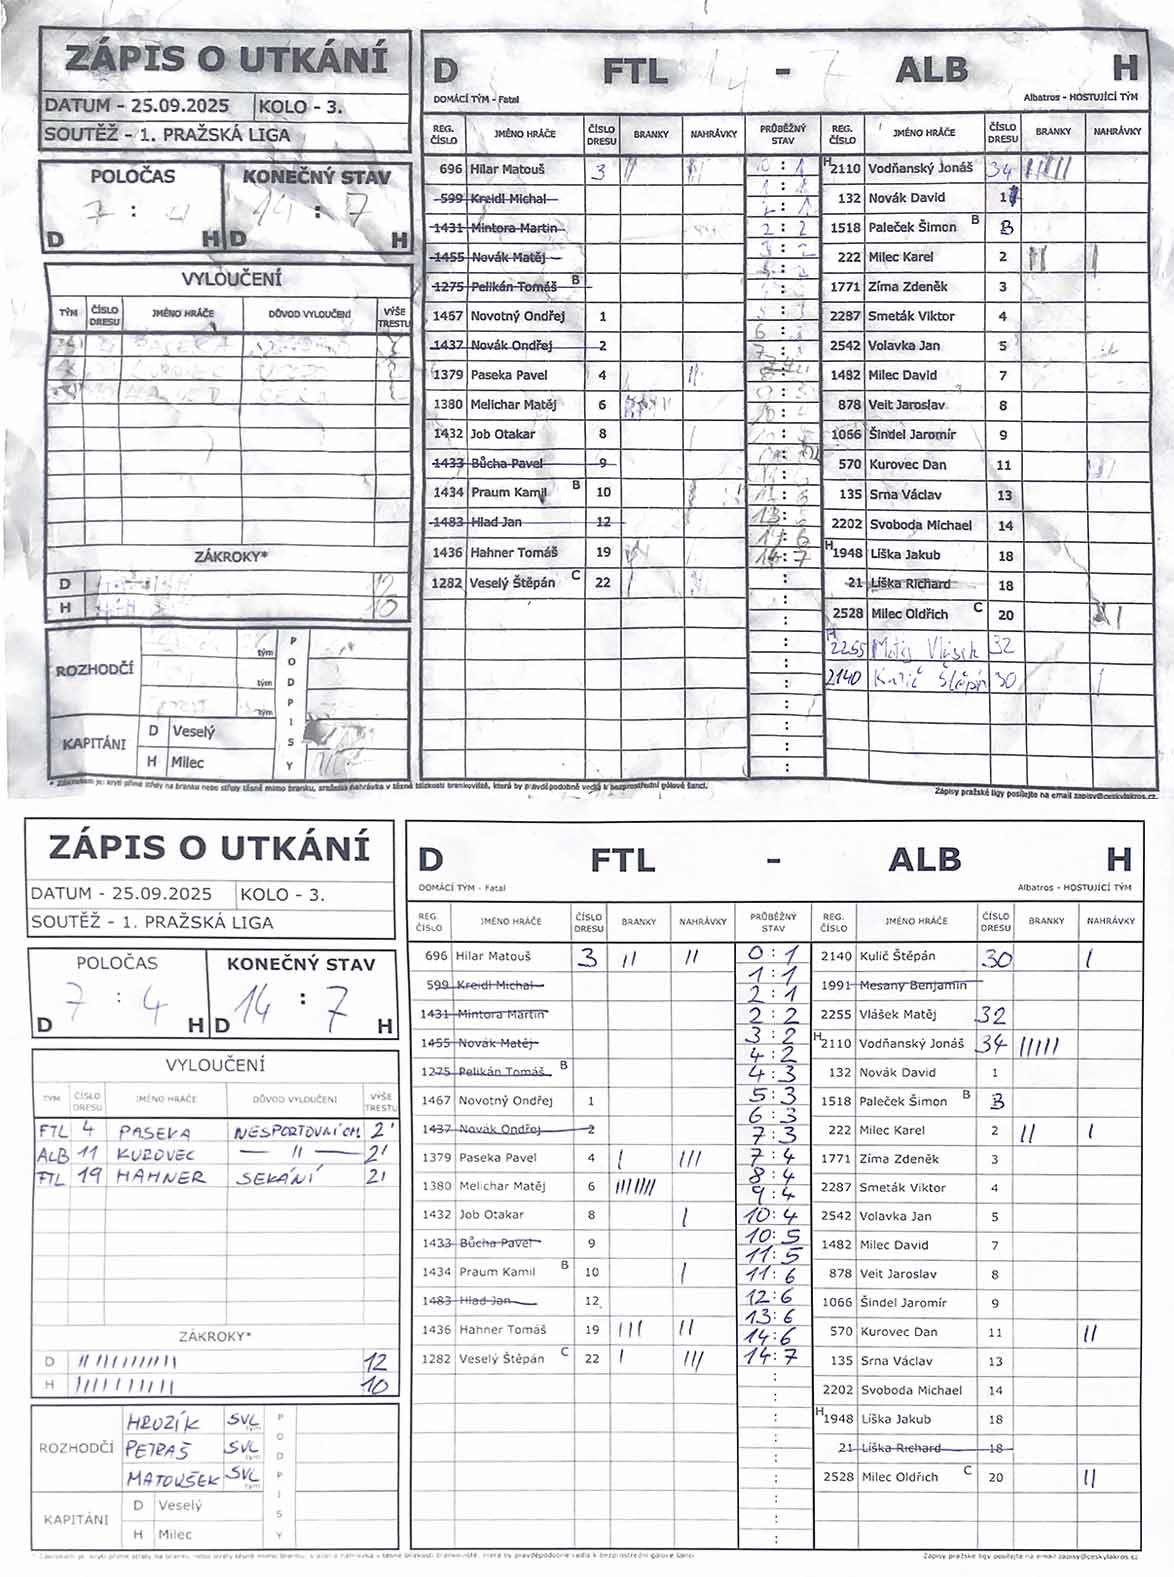 ZÁPIS O UTKÁNÍ
DATUM - 25.09.2025 KOLO - 3.
SOUTĚŽ - 1. PRAŽSKÁ LIGA
POLOČAS KONEČNÝ STAV
7 : 4 14 : 7
D H D H
VYLOUČENÍ
TÝM ČÍSLO DRESU JMÉNO HRÁČE DŮVOD VYLOUČENÍ VÝŠE TRESTU
ZÁKROKY*
D 12
H 10
ROZHODČÍ tým
tým
tým
PODPISY
KAPITÁNI D Veselý
H Milec
D FTL 14 - 7 ALB H
DOMÁCÍ TÝM - Fatal Albatros - HOSTUJÍCÍ TÝM
REG. ČÍSLO JMÉNO HRÁČE ČÍSLO DRESU BRANKY NAHRÁVKY PRŮBĚŽNÝ STAV REG. ČÍSLO JMÉNO HRÁČE ČÍSLO DRESU BRANKY NAHRÁVKY
696 Hilar Matouš 3 0 : 1 H 2110 Vodňanský Jonáš 34
599 Kreidl Michal 132 Novák David 1
1431 Mintora Martin 2 : 2 1518 Paleček Šimon B B
1455 Novák Matěj 3 : 2 222 Milec Karel 2
1275 Pelikán Tomáš B 1771 Zíma Zdeněk 3
1467 Novotný Ondřej 1 2287 Smeták Viktor 4
1437 Novák Ondřej 2 2542 Volavka Jan 5
1379 Paseka Pavel 4 1482 Milec David 7
1380 Melichar Matěj 6 878 Veit Jaroslav 8
1432 Job Otakar 8 1066 Šindel Jaromír 9
1433 Bůcha Pavel 9 570 Kurovec Dan 11
1434 Praum Kamil B 10 135 Srna Václav 13
1483 Hlad Jan 12 13: 2202 Svoboda Michael 14
1436 Hahner Tomáš 19 14 : 7 H 1948 Líška Jakub 18
1282 Veselý Štěpán C 22 21 Líška Richard 18
2528 Milec Oldřich C 20
H 2255 Matěj Vlášek 32
2140 Kulič Štěpán 30
* Zákrokem je: krytí přímé střely na branku nebo střely těsně mimo branku, sražená nahrávka v těsné blízkosti brankoviště, která by pravděpodobně vedla k bezprostřední gólové šanci.
Zápisy pražské ligy posílejte na email zapisy@ceskylakros.cz
ZÁPIS O UTKÁNÍ
DATUM - 25.09.2025 KOLO - 3.
SOUTĚŽ - 1. PRAŽSKÁ LIGA
POLOČAS KONEČNÝ STAV
7 : 4 14 : 7
D H D H
VYLOUČENÍ
TÝM ČÍSLO DRESU JMÉNO HRÁČE DŮVOD VYLOUČENÍ VÝŠE TRESTU
FTL 4 PASEKA NESPORTOVNÍ CH. 2'
ALB 11 KUROVEC — 11 — 2'
FTL 19 HAHNER SEKÁNÍ 2'
ZÁKROKY*
D 12
H 10
ROZHODČÍ HRUZÍK SVL tým
PETRAŠ SVL tým
MATOUŠEK SVL tým
PODPISY
KAPITÁNI D Veselý
H Milec
D FTL - ALB H
DOMÁCÍ TÝM - Fatal Albatros - HOSTUJÍCÍ TÝM
REG. ČÍSLO JMÉNO HRÁČE ČÍSLO DRESU BRANKY NAHRÁVKY PRŮBĚŽNÝ STAV REG. ČÍSLO JMÉNO HRÁČE ČÍSLO DRESU BRANKY NAHRÁVKY
696 Hilar Matouš 3 II II 0 : 1 2140 Kulič Štěpán 30 I
599 Kreidl Michal 1 : 1 2 : 1 1991 Mesany Benjamin
1431 Mintora Martin 2 : 2 2255 Vlášek Matěj 32
1455 Novák Matěj 3 : 2 4 : 2 H 2110 Vodňanský Jonáš 34 IIIII
1275 Pelikán Tomáš B 4 : 3 132 Novák David 1
1467 Novotný Ondřej 1 5 : 3 6 : 3 1518 Paleček Šimon B B
1437 Novák Ondřej 2 7 : 3 222 Milec Karel 2 II I
1379 Paseka Pavel 4 I III 7 : 4 8 : 4 1771 Zíma Zdeněk 3
1380 Melichar Matěj 6 IIIIIII 9 : 4 2287 Smeták Viktor 4
1432 Job Otakar 8 I 10 : 4 2542 Volavka Jan 5
1433 Bůcha Pavel 9 10 : 5 11 : 5 1482 Milec David 7
1434 Praum Kamil B 10 I 11 : 6 878 Veit Jaroslav 8
1483 Hlad Jan 12 12 : 6 13 : 6 1066 Šindel Jaromír 9
1436 Hahner Tomáš 19 III II 14 : 6 570 Kurovec Dan 11 II
1282 Veselý Štěpán C 22 I III 14 : 7 135 Srna Václav 13
2202 Svoboda Michael 14
H 1948 Líška Jakub 18
21 Líška Richard 18
2528 Milec Oldřich C 20 II
* Zákrokem je: krytí přímé střely na branku nebo střely těsně mimo branku, sražená nahrávka v těsné blízkosti brankoviště, která by pravděpodobně vedla k bezprostřední gólové šanci.
Zápisy pražské ligy posílejte na email zapisy@ceskylakros.cz